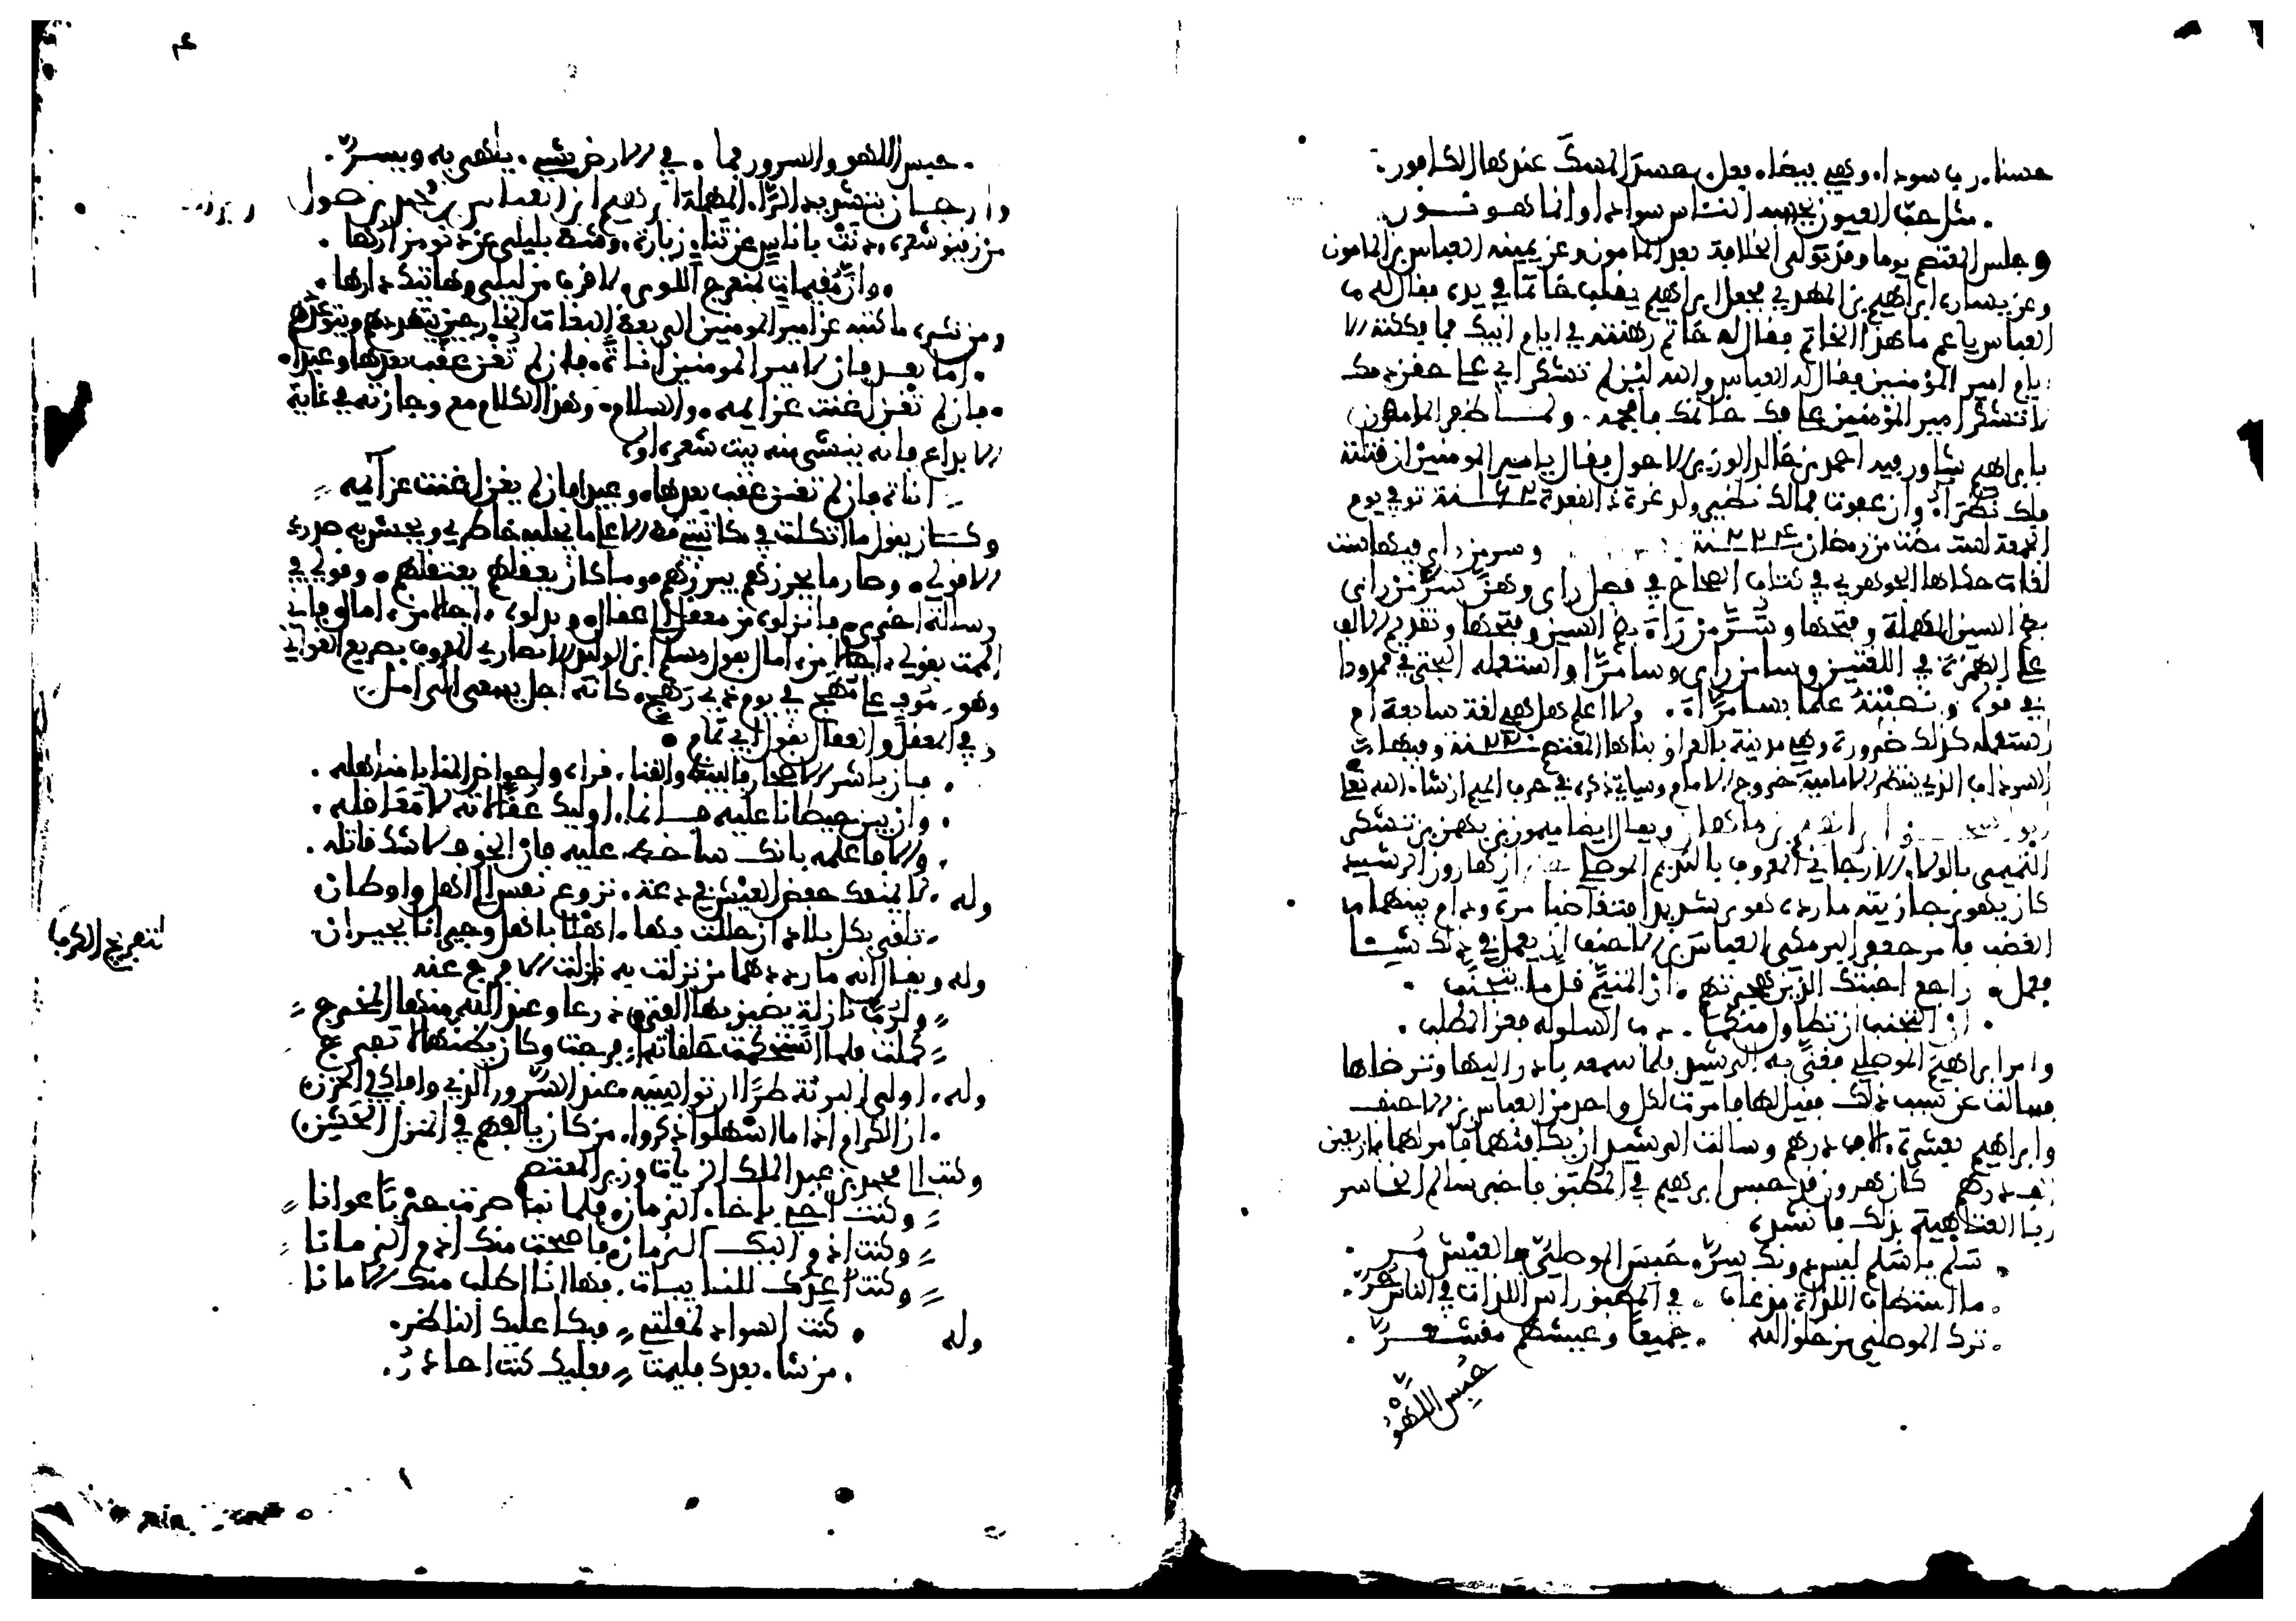 حسنا. رب سوداء وهي بيضاء فعل. حسد المسك عندها الكافور.
. مثل حب العيون يحسبه الناس سوادا وانما هو نــور.
وجلس المعتصم يوما وقد تولى الخلافة بعد المامون وعن يمينه العباس بن المامون
وعن يساره ابراهيم بن المهدي فجعل ابراهيم يقلب خاتما في يده فقال له
العباس يا عم ما هذا الخاتم فقال له خاتم رهنته في ايام ابيك فما فككته الا
في ايام امير المؤمنين فقال له العباس والله لئن لم تشكر ابي على حقن دمك
لا تشكر امير المؤمنين على فك خاتمك فافحمه. ولمــا ظفر المامون
بابراهيم شاور فيه احمد بن خالد الوزير الاحول فقال يا امير المومنين ان قتلته
فلك نظراء وان عفوت فما لك نظير ولد غرة ذي القعدة ١٦٢ ــنة توفي يوم
الجمعة لتسع مضت من رمضان ٢٢٤ ــنة وسر من رأى فيها ست
لغات حكاها الجوهري في كتاب الصحاح في فصل رأى وهن سُرَّ من رأى
بضم السين المهملة وفتحها وسُرَّ من رَاءَ بضم السين وفتحها وتقديم الالف
على الهمزة في اللغتين وسا من رأى وسامَرّا واستعمله البحتري ممدودا
في قوله ونصبتَهُ علما بسامَرّاء. ولا اعلم هل هي لغة سابعة ام
استعمله كذلك ضرورة وهي مدينة بالعراق بناها المعتصم ٢٢٠ ــنة وفيها
السرداب الذي ينتظر الامامية خروج الامام وسياتي ذكره في حرف الميم ان شاء الله تعلى
ابو اسحــق ابراهيم بن ماهان ويقال ايضا ميمون بن بهمن بن نسك
التميمي بالولاء الارجاني المعروف بالنديم الموصلي ان هارون الرشيد
كان يهوى جاريته مارده هوى شديدا فتغاضبا مرة ودام بينهما
الغضب فامر جعفر البرمكي العباس بن الاحنف ان يعمل في ذلك شيــئا
فعمل. راجع احبتك الذين هجرتهم. ان المتيَّم قلما يتجنب.
. ان التجنب ان تطاول منكما. دب السلو له فعز المطلب.
وامر ابراهيم الموصلي فغنى به الرشيد فلما سمعه بادر اليها وترضاها
فسالت عن سبب ذلك فقيل لها فامرت لكل واحد من العباس بن الاحنف
وابراهيم بعشرة الاف درهم وسالت الرشيد ان يكافئهما فامر لهما باربعين
الف درهم كان هرون قد حبس ابرهيم في المطبق فاخبر سالم الخاسر
ابا العتاهية بذلك فانشده
. سلم يا سلم ليس دونك سِرّ. حُبِسَ الموصليّ فالعيش مُــر.
. ما استطاب اللذات مذ غاب. في المطبق راس اللذات في الناس حُرّ.
. ترك الموصلي من خلق الله. جميعا وعيشهم مقشعــرّ.
حُبِس اللهوُ
. حبس اللهو والسرور فما. في الارض شيء. يلهى به ويسرّ.
مر زينو شعره. دنت باناس عن تناء زيارة. وشط بليلى عن دنو مزارها.
. وان مقيمات بمنعرج اللوى. لاقرب من ليلى وهاتيك دارها.
ومن نثره ما كتبه عن امير المومنين الى بعض البغاة الخارجين يتهددهم ويتوعدهم
. اما بعــد فان لامير المومنين اناة. فان لم تغن عقب بعدها وعيدا.
. فان لم تغن اغنت عزائمه. والسلام. وهذا الكلام مع وجازته في غاية
الابداع فانه ينشئ منه بيت شعر اوله
اناة فان لم تغن عقب بعدها. وعيدا فان لم يغن اغنت عزائمه
وكــان يقول ما اتكلت في مكاتبتي قط الا على ما يجلبه خاطري ويجيش به صدري
الا قولي. وصار ما يحرزهم يبرزهم وما كان يعقلهم يعتقلهم. وقولي في
رسالة اخرى. فانزلوه من معقل الى عقال وبدلوه. اجالا من امال فاني
الممت بقولي. اجالا من امال بقول مسلم ابن الوليد الانصاري المعروف بصريع الغواني
وهو. مُوفٍ على مُهَج في يوم ذي رَهَج. كانه اجل يسعى الى امــل
وفي المعقل والعقال بقول ابي تمام.
. فان باشر الاصحار فالبيض والقنا. قراه واحواض المنايا مناهله.
. وان يبن حيطانا عليه فــانما. اوليك عُقّالاته لا معاقله.
. والا فاعلمه بانك ساخط. عليه فان الخوف لا شك قاتله.
وله. لا يمنعك خفض العيش في دعة. نزوع نفس الى اهل واوطان.
. تلقى بكل بلاد ان حللت بها. اهلا باهل وجيرانا بجيــران.
وله ويقال انه ما رددهما من نزلت به نازلة الا فرج عنه
ولرُبَّ نازلة يضيق بها الفتى. ذرعا وعند الله منها المخرج
كملت فلما استحكمت حلقاتها. فرجت وكان يظنها لا تفــرج
وله. اولى البرية طرّا ان تواسيه. عند السرور الذي واساك في الحزن
. ان الكرام اذا ما اسهلوا ذكروا. من كان يالفهم في المنزل الخشن)
وكتب الى محمد بن عبد الملك الزيات وزير المعتصم
وكنت اخي باخاء الزمان. فلما نبا صرت حربا عوانا
وكنت اذم اليك الزمان. فاصبحت منك اذم الزمانا
وكنت اعدك للنايبات. فها انا اطلب منك الامانا
وله . كنت السواد لمقلتي. فبكا عليك الناظر.
. من شاء بعدك فليمت. فعليك كنت احاذرُ.